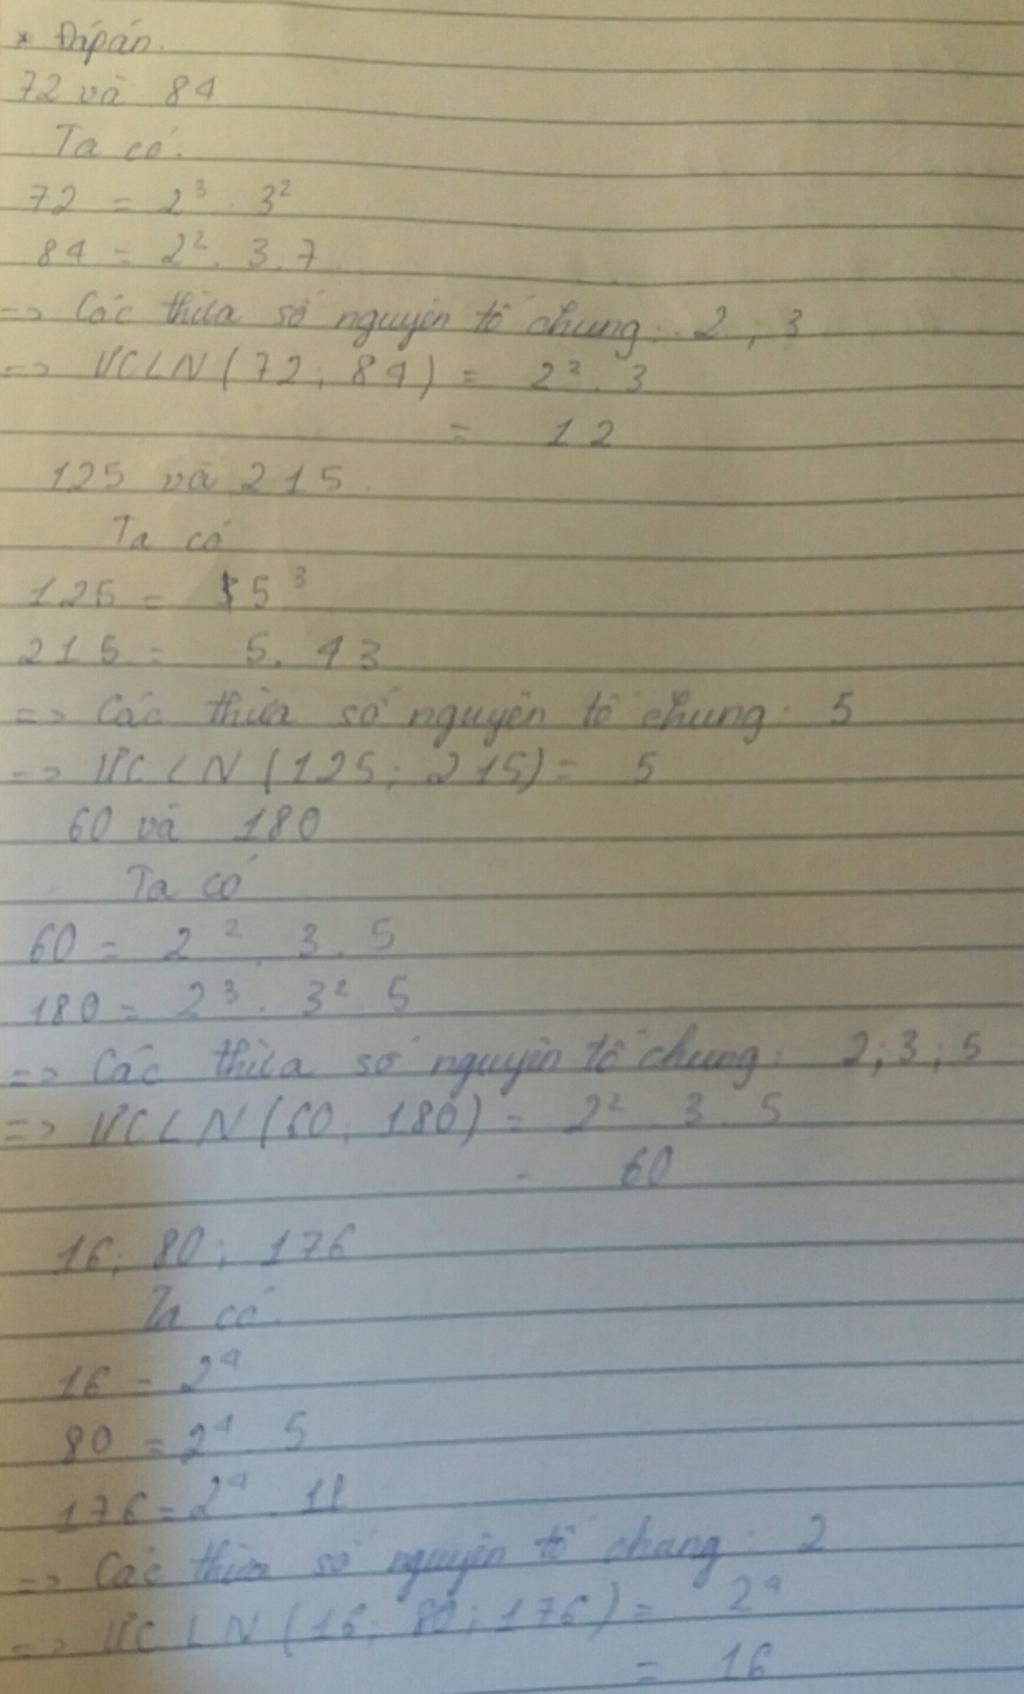 * Đáp án.
72 và 84
Ta có:
72 = 2³ . 3²
84 = 2² . 3 . 7
=> Các thừa số nguyên tố chung: 2 ; 3
=> ƯCLN(72; 84) = 2² . 3
= 12
125 và 215
Ta có
125 = 5³
215 = 5 . 43
=> Các thừa số nguyên tố chung: 5
=> ƯCLN(125; 215) = 5
60 và 180
Ta có
60 = 2² . 3 . 5
180 = 2³ . 3² . 5
=> Các thừa số nguyên tố chung: 2; 3; 5
=> ƯCLN(60; 180) = 2² 3 . 5
= 60
16; 80; 176
Ta có:
16 = 2⁴
80 = 2⁴ 5
176 = 2⁴ . 11
=> Các thừa số nguyên tố chung: 2
=> ƯCLN(16; 80; 176) = 2⁴
= 16